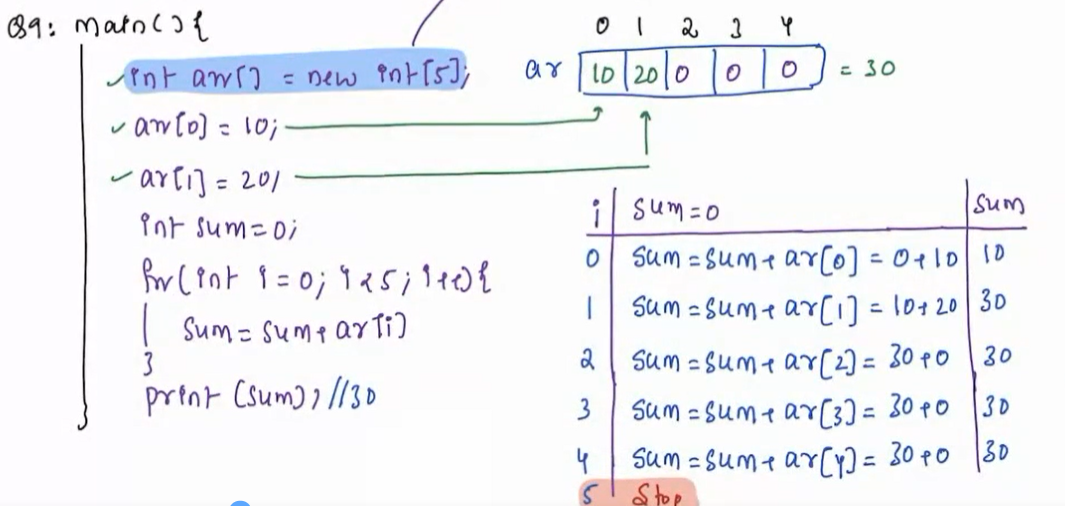 Q9: main(){
int arr[] = new int[5];
arr[0] = 10;
ar[1] = 20;
int sum=0;
for(int i=0; i<5; i++){
sum = sum+ar[i]
}
print(sum); //30
}
0 1 2 3 4
ar 10 20 0 0 0 = 30
i sum=0 sum
0 sum=sum+ar[0] = 0+10 10
1 sum=sum+ar[1] = 10+20 30
2 sum=sum+ar[2] = 30+0 30
3 sum=sum+ar[3] = 30+0 30
4 sum=sum+ar[4] = 30+0 30
5 Stop